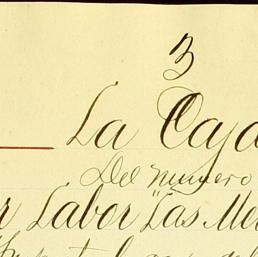 3
La Caja
Del numero
r Labor "Las Me